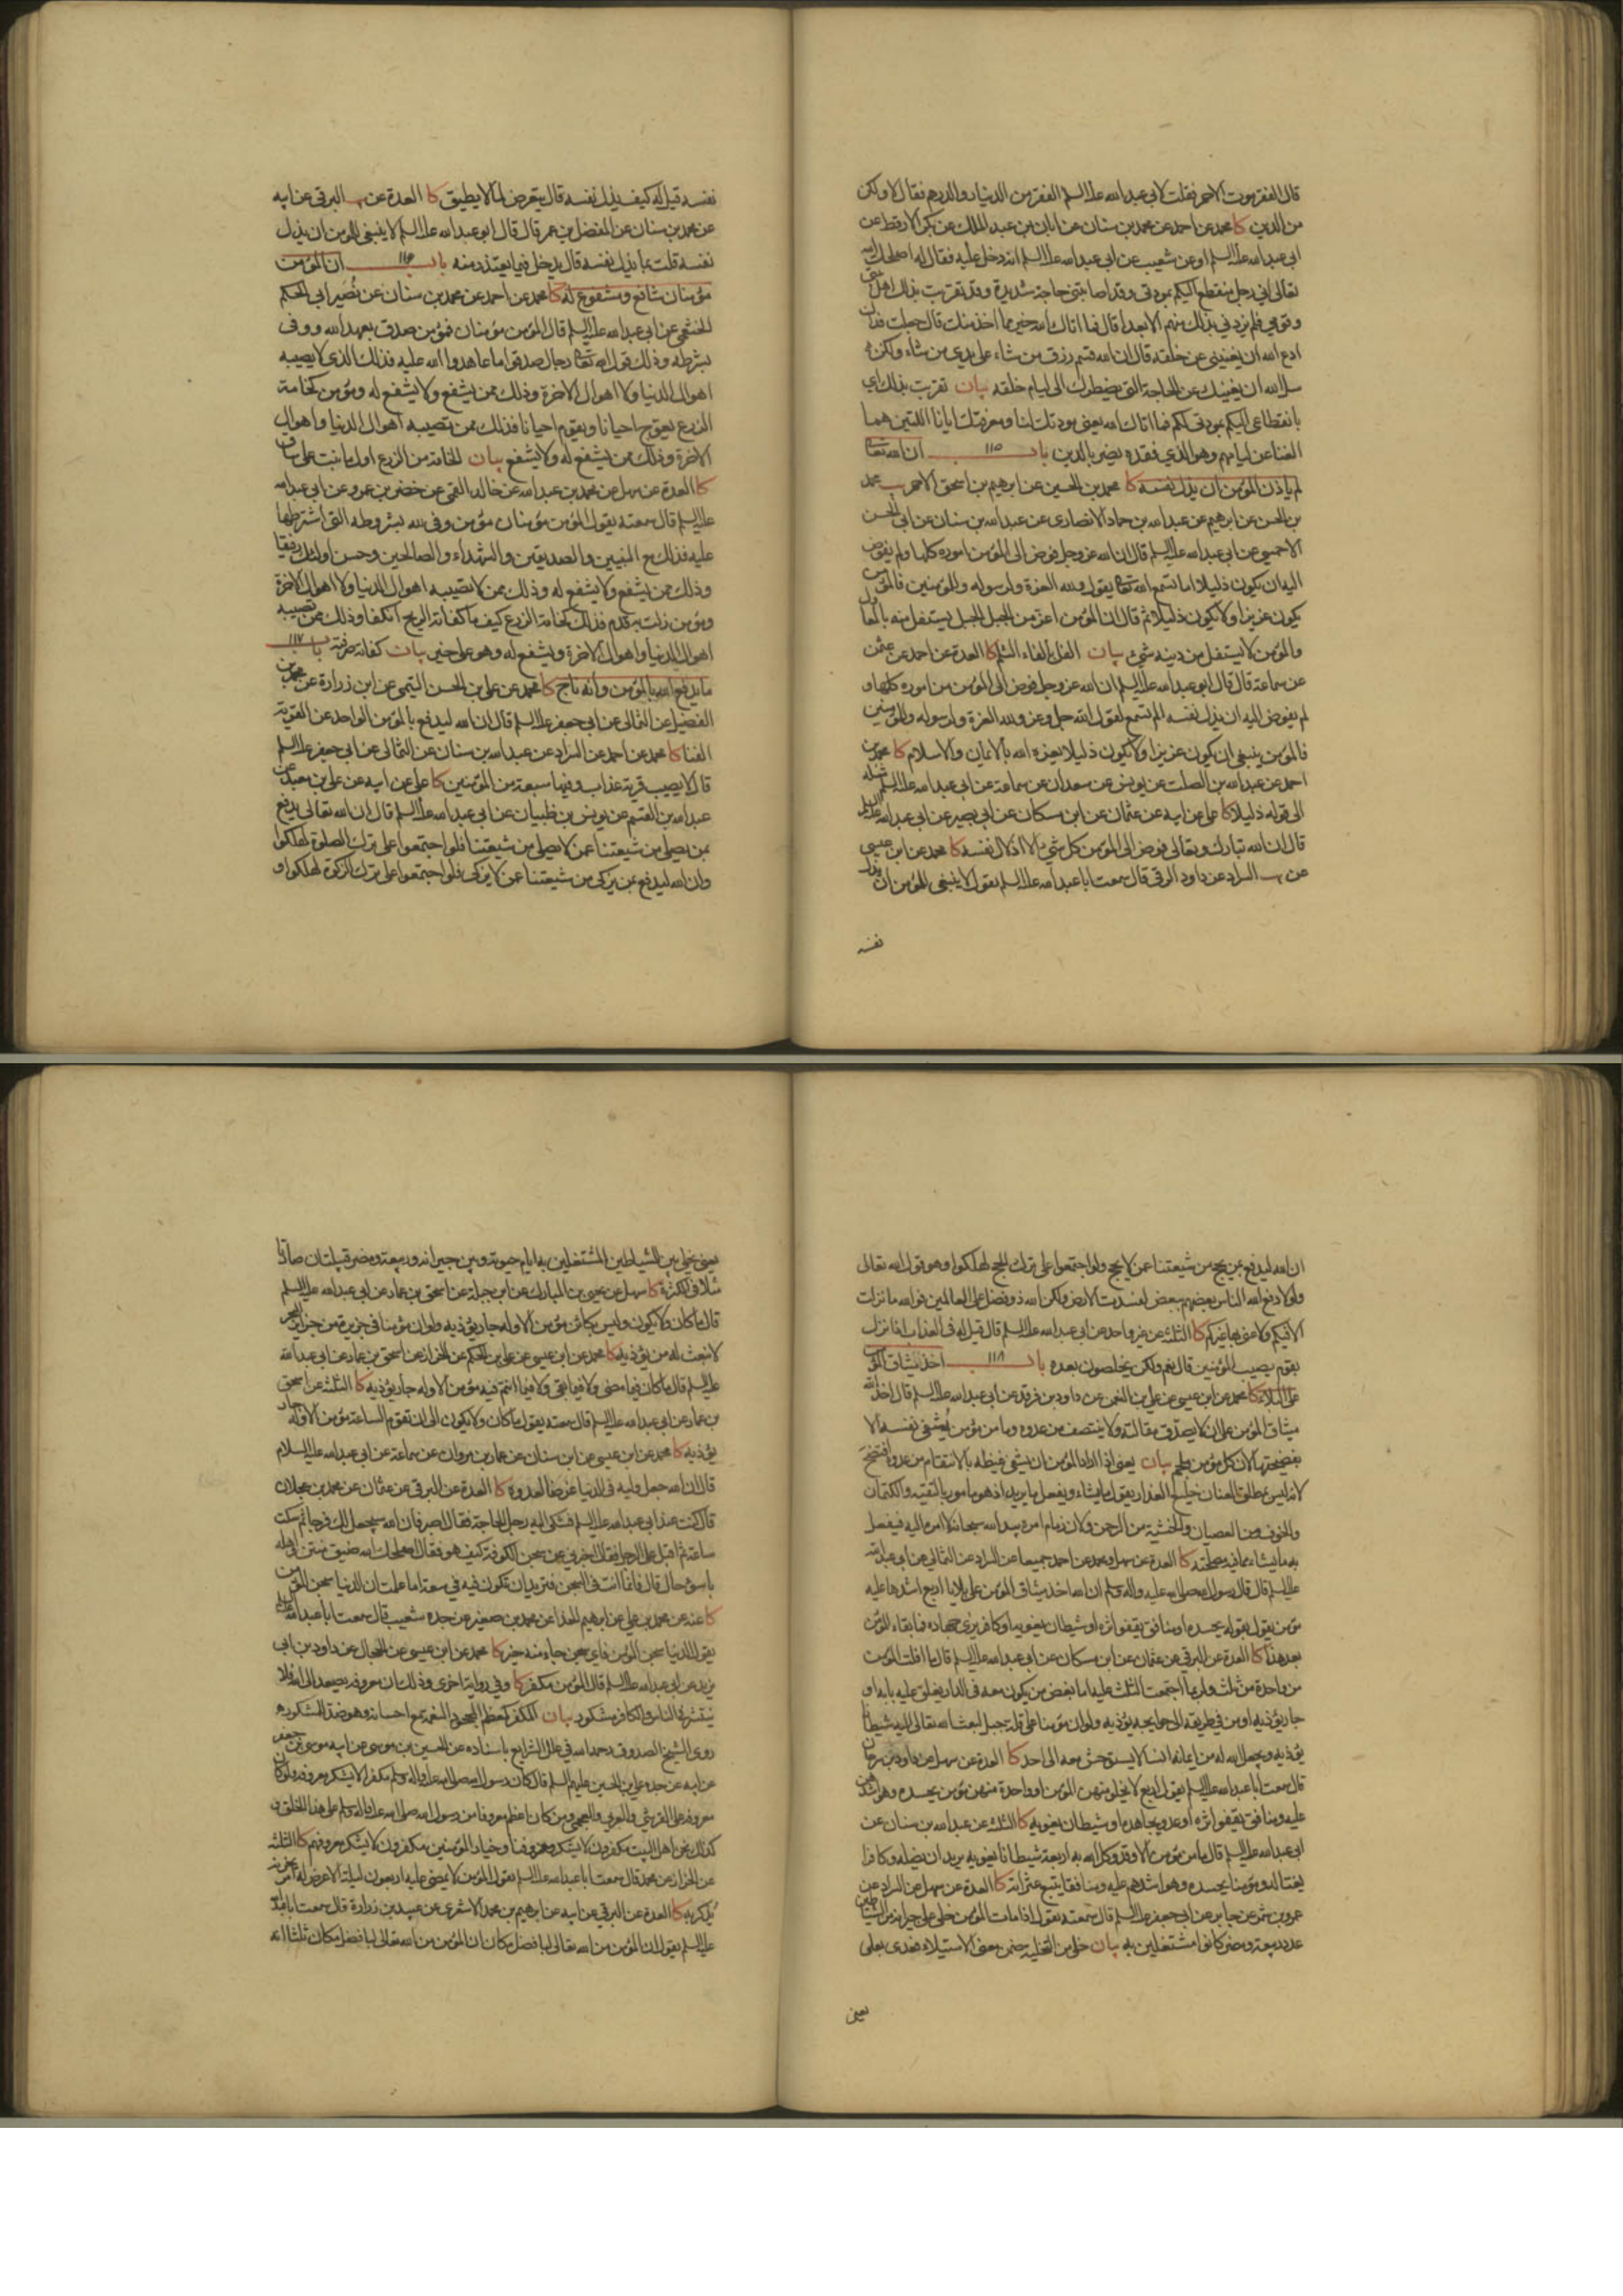 قال الفقر موت الاحمر فقلت لابي عبد الله علا السلم الفقر من الدينار والدرهم فقال لا ولكن
من الدين كا محمد عن احمد عن محمد بن سنان عن ابان بن عبد الملك عن بكر الارقط عن
ابي عبد الله علا السلم او عن شعيب عن ابي عبد الله علا السلم انه دخل عليه فقال له اصلحك الله
تعالى اني رجل منقطع اليكم بمودتي وقد اصابتني حاجة شديدة وقد تقربت بذلك اهل بيتي
وقومي فلم يزدني بذلك منهم الا بعدا قال فما اتاك الله خير مما اخذ منك قال جعلت فداك
ادع الله ان يغنيني عن خلقه قال ان الله قسم رزق من شاء على يدي من شاء ولكن
سل الله ان يغنيك عن الحاجة التي تضطرك الى ليام خلقه بيان تقربت بذلك اي
بانقطاعي اليكم بمودتي لكم فما اتاك الله يعني مودتك لنا ومعرفتك ايانا اللتين هما
الغنا عن ليامهم وهو الذي فقده يضر بالدين باب ١١٥ ان الله تعالى
لم ياذن للمؤمن ان يذل نفسه كا محمد بن الحسين عن ابرهيم بن اسحق الاحمر يب محمد
بن الحسن عن ابرهيم عن عبد الله بن حماد الانصارى عن عبد الله بن سنان عن ابي الحسن
الاحمسي عن ابي عبد الله عليه السلم قال ان الله عز وجل فوض الى المؤمن اموره كلها ولم يفوض
اليه ان يكون ذليلا اما تسمع الله تعالى يقول ولله العزة ولرسوله وللمؤمنين فالمؤمن
يكون عزيزا ولا يكون ذليلا ثم قال ان المؤمن اعز من الجبل الجبل يستفل منه بالمعاول
والمؤمن لا يستفل من دينه شيء بيان الفل بالفاء الثلم كا العدة عن احمد عن عثمن
عن سماعة قال قال ابو عبد الله علا السلم ان الله عز وجل فوض الى المؤمن من اموره كلها و
لم يفوض اليه ان يذل نفسه الم تسمع لقول الله جل وعز ولله العزة ولرسوله وللمؤمنين
فالمؤمن ينبغي ان يكون عزيزا ولا يكون ذليلا يعزه الله بالايمان والاسلام كا محمد بن
احمد عن عبد الله بن الصلت عن يونس عن سعدان عن سماعة عن ابي عبد الله علا السلم مثله
الى قوله ذليلا كا علي عن ابيه عن عثمان عن ابن مسكان عن ابي بصير عن ابي عبد الله عليه السلم
قال ان الله تبارك وتعالى فوض الى المؤمن كل شيء الا اذلال نفسه كا محمد عن ابن عيسى
عن يب السراد عن داود الرقي قال سمعت ابا عبد الله علا السلم يقول لا ينبغي للمؤمن ان يذل
نفسه
نفسه قيل له كيف يذل نفسه قال يتعرض لما لا يطيق كا العدة عن يب البرقي عن ابيه
عن محمد بن سنان عن المفضل بن عمر قال قال ابو عبد الله علا السلم لا ينبغي للمؤمن ان يذل
نفسه قلت بما يذل نفسه قال يدخل فيما يعتذر منه باب ١١٦ ان المؤمن
مؤمنان شافع ومشفوع له كا محمد عن احمد عن محمد بن سنان عن نصير ابي الحكم
الخثعمي عن ابي عبد الله عليه السلم قال المؤمن مؤمنان فمؤمن صدق بعهد الله ووفى
بشرطه وذلك قول الله تعالى رجال صدقوا ما عاهدوا الله عليه فذلك الذي لا يصيبه
اهوال الدنيا ولا اهوال الاخرة وذلك ممن يشفع ولا يشفع له ومؤمن كخامة
الزرع يعوج احيانا ويقوم احيانا فذلك ممن تصيبه اهوال الدنيا واهوال
الاخرة وذلك ممن يشفع له ولا يشفع بيان الخامة من الزرع اول ما ينبت على ساق
كا العدة عن سهل عن محمد بن عبد الله عن خالد القمي عن خضر بن عمرو عن ابي عبد الله
عليه السلم قال سمعته يقول المؤمن مؤمنان مؤمن وفى لله بشروطه التي اشترطها
عليه فذلك مع النبيين والصديقين والشهداء والصالحين وحسن اولئك رفيقا
وذلك ممن يشفع ولا يشفع له وذلك ممن لا تصيبه اهوال الدنيا ولا اهوال الاخرة
ومؤمن زلت به قدم فذلك كخامة الزرع كيف ما كفاته الريح انكفا وذلك ممن تصيبه
اهوال الدنيا واهوال الاخرة ويشفع له وهو على خير بيان كفاته صرفته باب ١١٧
ما يدفع الله بالمؤمن وانه ناج كا محمد عن علي بن الحسن التيمي عن ابن زرارة عن محمد بن
الفضيل عن الثمالي عن ابي جعفر علا السلم قال ان الله ليدفع بالمؤمن الواحد عن القرية
الفنا كا محمد عن احمد عن السراد عن عبد الله بن سنان عن الثمالي عن ابي جعفر علا السلم
قال لا يصيب قرية عذاب وفيها سبعة من المؤمنين كا علي عن ابيه عن علي بن معبد عن
عبد الله بن القسم عن يونس بن ظبيان عن ابي عبد الله علا السلم قال ان الله تعالى يدفع
بمن يصلي من شيعتنا عمن لا يصلي من شيعتنا فلو اجتمعوا على ترك الصلوة لهلكوا
وان الله ليدفع بمن يزكي من شيعتنا عمن لا يزكى فلو اجتمعوا على ترك الزكوة لهلكوا و
ان الله ليدفع بمن يحج من شيعتنا عمن لا يحج ولو اجتمعوا على ترك الحج لهلكوا وهو قول الله تعالى
ولولا دفع الله الناس بعضهم ببعض لفسدت الارض ولكن الله ذو فضل على العالمين فوالله ما نزلت
الا فيكم ولا عنى بها غيركم كا الثلثة عن غير واحد عن ابي عبد الله علا السلم قال قيل له في العذاب اذا نزل
بقوم يصيب المؤمنين قال نعم ولكن يخلصون بعده باب ١١٨ اخذ ميثاق المؤمن
على البلاء كا محمد عن ابن عيسى عن علي بن النعمن عن داود بن فرقد عن ابي عبد الله علا السلم قال اخذ الله
ميثاق المؤمن على ان لا يصدق مقالته ولا ينتصف من عدوه وما من مؤمن يشفى نفسه الا
بفضيحتها لان كل مؤمن ملجم بيان يعني اذا اراد المؤمن ان يشفي غيظه بالانتقام من عدوه افتضح
لانه ليس بمطلق العنان خليع العذار يقول ما يشاء ويفعل ما يريد اذ هو مامور بالتقية والكتمان
والخوف من العصيان والخشية من الرحمن ولان زمام امره بيد الله سبحانه لا امره اليه فيفعل
به ما يشاء مما فيه مصلحته كا العدة عن سهل ومحمد عن احمد جميعا عن السراد عن الثمالي عن ابي عبد الله
عليه السلم قال قال رسول الله صلى الله عليه واله وسلم ان الله اخذ ميثاق المؤمن على بلايا اربع اشدها عليه
مؤمن يقول بقوله يحسده او منافق يقفو اثره او شيطان يغويه او كافر يرى جهاده فما بقاء المؤمن
بعد هذا كا العدة عن البرقي عن عثمان عن ابن مسكان عن ابي عبد الله علا السلم قال ما افلت المؤمن
من واحدة من ثلث ولربما اجتمعت الثلث عليه اما بغض من يكون معه في الدار يغلق عليه بابه او
جار يؤذيه او من في طريقه الى حوايجه يؤذيه ولو ان مؤمنا على قلة جبل لبعث الله تعالى اليه شيطانا
يؤذيه ويجعل الله له من ايمانه انسا لا يستوحش معه الى احد كا العدة عن سهل عن داود بن سرحان
قال سمعت ابا عبد الله علا السلم يقول اربع لا يخلو منهن المؤمن او واحدة منهن مؤمن يحسده وهو اشدهن
عليه ومنافق يقفو اثره او عدو يجاهده او شيطان يغويه كا الثلثة عن عبد الله بن سنان عن
ابي عبد الله علا السلم قال ما من مؤمن الا وقد وكل الله به اربعة شيطانا يغويه يريد ان يضله وكافرا
يغتاله ومؤمنا يحسده وهو اشدهم عليه ومنافقا يتبع عثراته كا العدة عن سهل عن السراد عن
عمرو بن شمر عن جابر عن ابي جعفر علا السلم قال سمعته يقول اذا مات المؤمن خلى على جيرانه من الشياطين
عدد ربيعة ومضر كانوا مشتغلين به بيان خلى من التخلية ضمن معنى الاستيلاء فعدى بعلى
يعني
يعني خلي بين الشياطين المشتغلين به ايام حيوته وبين جيرانه وربيعة ومضر قبيلتان صارتا
مثلا في الكثرة كا سهل عن يحيى بن المبارك عن ابن جبلة عن اسحق بن عمار عن ابي عبد الله عليه السلم
قال ما كان ولا يكون وليس بكائن مؤمن الا وله جار يؤذيه ولو ان مؤمنا في جزيرة من جزاير البحر
لانبعث له من يؤذيه كا محمد عن ابن عيسى عن علي بن الحكم عن الخزاز عن اسحق بن عمار عن ابي عبد الله
عليه السلم قال ما كان فيما مضى ولا فيما بقي ولا فيما انتم فيه مؤمن الا وله جار يؤذيه كا الثلثة عن اسحق
بن عمار عن ابي عبد الله عليه السلم قال سمعته يقول ما كان ولا يكون الى ان تقوم الساعة مؤمن الا وله جار
يؤذيه كا محمد عن ابن عيسى عن ابن سنان عن عمار بن مروان عن سماعة عن ابي عبد الله عليه السلام
قال ان الله جعل وليه في الدنيا غرضا لعدوه كا العدة عن البرقي عن عثمان عن محمد بن عجلان
قال كنت عند ابي عبد الله عليه السلم فشكى اليه رجل الحاجة فقال اصبر فان الله سيجعل لك فرجا ثم سكت
ساعة ثم اقبل على الرجل فقال اخبرني عن سجن الكوفة كيف هو فقال اصلحك الله ضيق منتن واهله
باسوء حال قال فانما انت في السجن فتريد ان تكون فيه في سعة اما علمت ان الدنيا سجن المؤمن
كا عنه عن محمد بن علي عن ابرهيم الحذاء عن محمد بن صغير عن جده شعيب قال سمعت ابا عبد الله عليه السلم
يقول الدنيا سجن المؤمن فاي سجن جاء منه خير كا محمد عن ابن عيسى عن الحجال عن داود بن ابي
يزيد عن ابي عبد الله علا السلم قال المؤمن مكفر كا وفي رواية اخرى وذلك ان معروفه يصعد الى الله فلا
ينتشر في الناس والكافر مشكور بيان المكفر كمعظم المجحود النعمة مع احسانه وهو ضد المشكور
روى الشيخ الصدوق رحمه الله في علل الشرايع باسناده عن الحسين بن موسى عن ابيه موسى بن جعفر
عن ابيه عن جده علي بن الحسين عليهم السلم قال كان رسول الله صلى الله عليه واله وسلم مكفرا لا يشكر معروفه ولقد كان
معروفه على القرشي والعربي والعجمي ومن كان اعظم معروفا من رسول الله صلى الله عليه واله وسلم على هذا الخلق و
كذلك نحن اهل البيت مكفرون لا يشكر معروفنا وخيار المؤمنين مكفرون لا يشكر معروفهم كا الثلثة
عن الخزاز عن محمد قال سمعت ابا عبد الله علا السلم يقول المؤمن لا يمضي عليه اربعون ليلة الا عرض له امر يحزنه
يذكر به كا العدة عن البرقي عن ابيه عن ابرهيم بن محمد الاشعري عن عبيد بن زرارة قال سمعت ابا عبد الله
عليه السلم يقول ان المؤمن من الله تعالى لبافضل مكان ان المؤمن من الله تعالى لبافضل مكان ثلثا انه